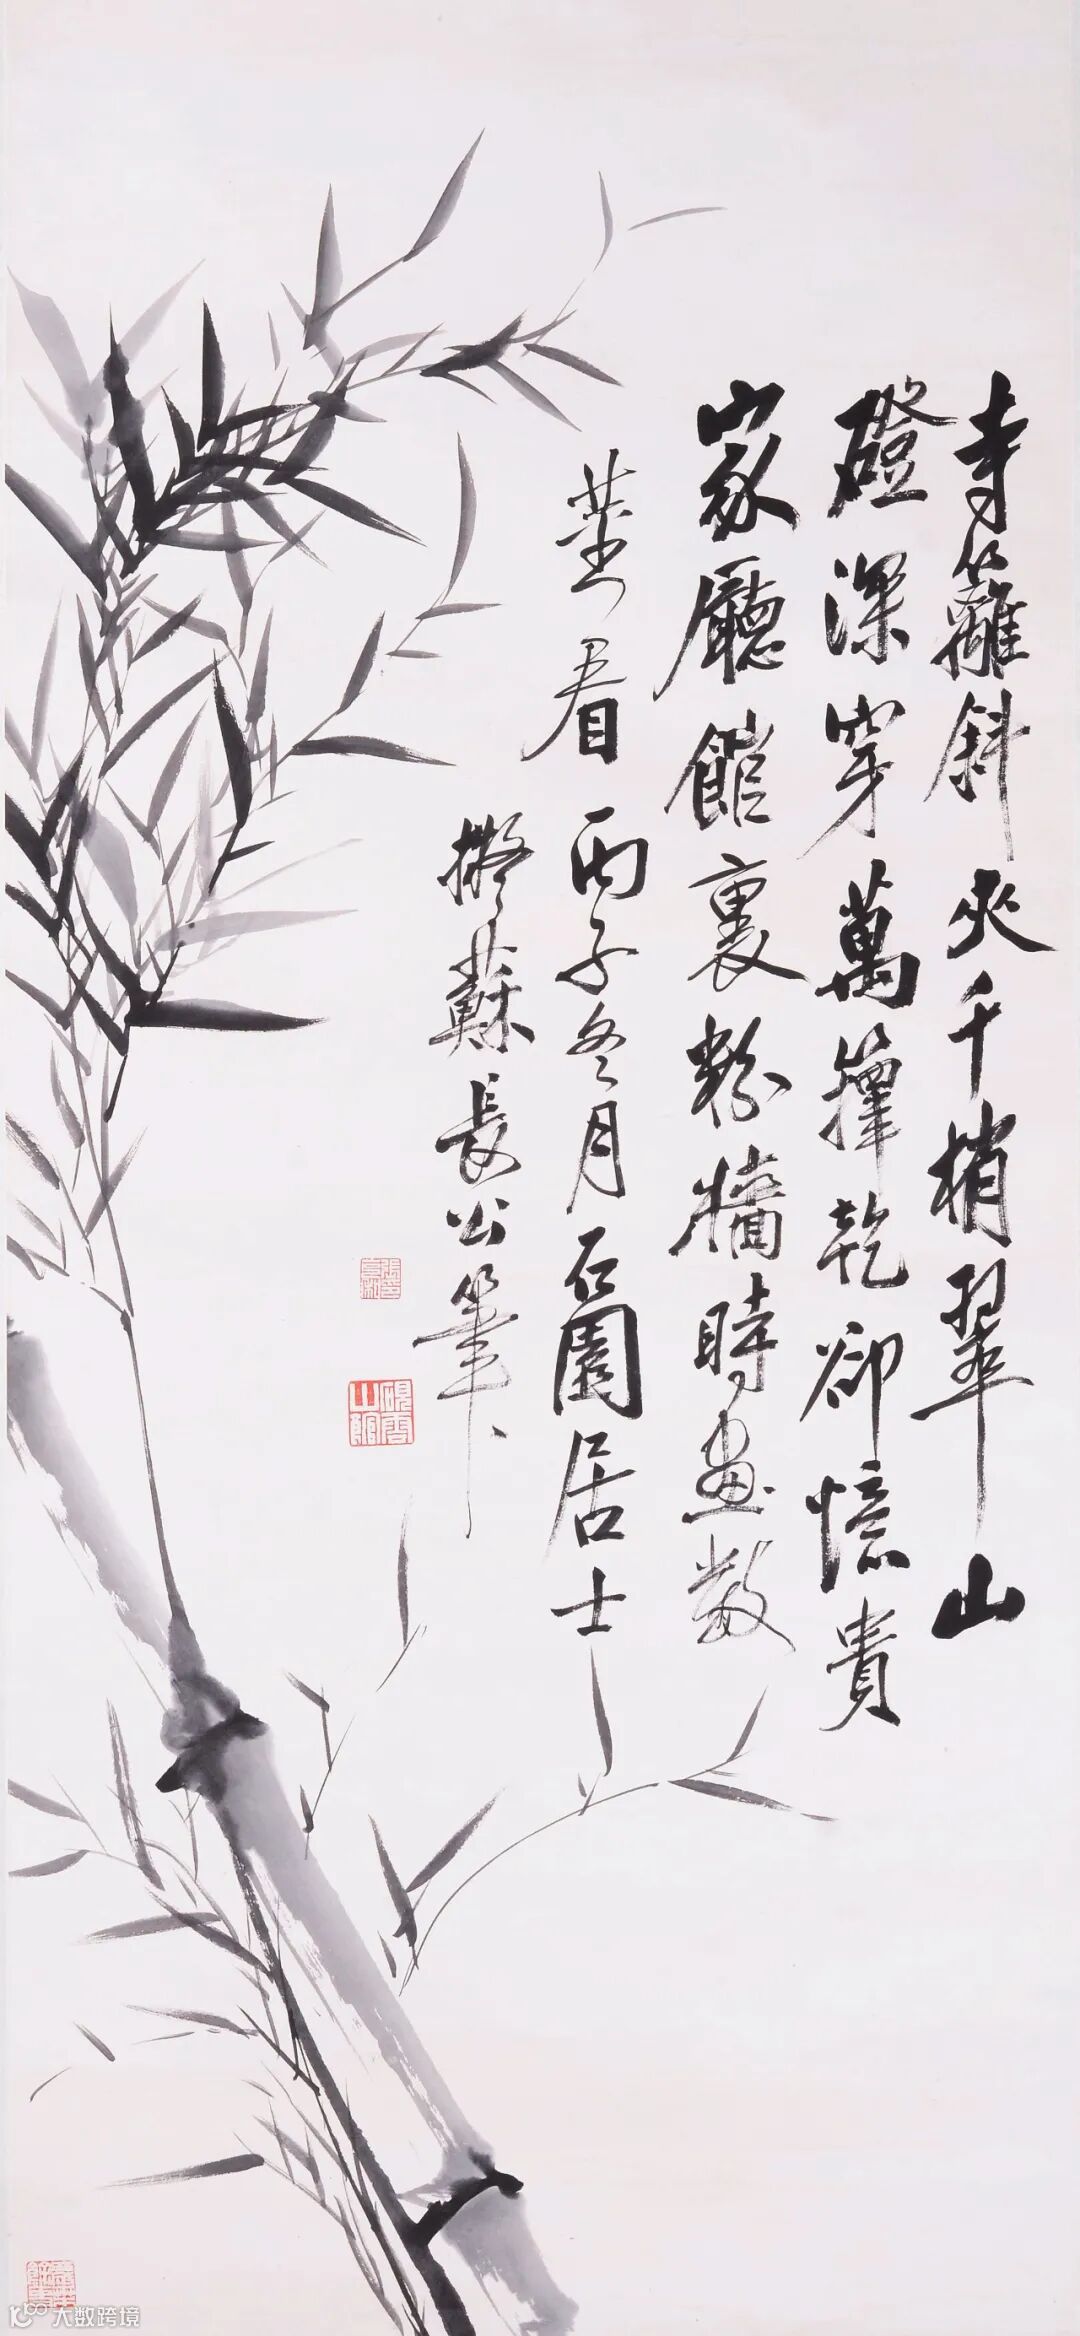 寺籬斜夾千梢翠山
磴深穿萬籜乾卻憶貴
家廳館裏粉牆時畫數
莖看 丙子冬月石園居士
擬蘇長公筆
大数跨境